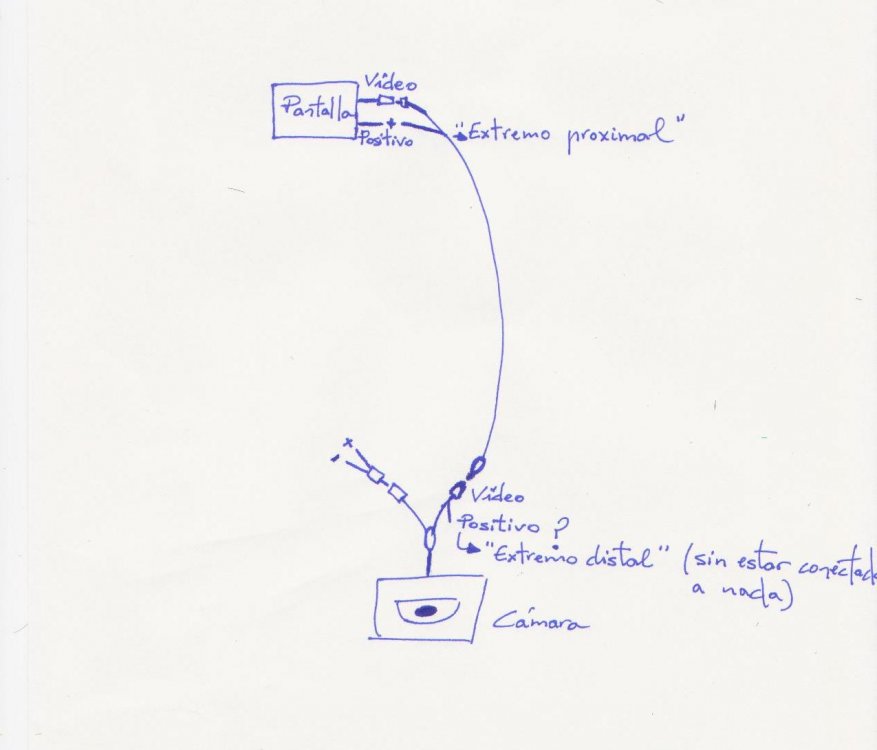 Vídeo
Pantalla
+
Positivo
"Extremo proximal"
+
-
Vídeo
Positivo ?
"Extremo distal" (sin estar conectado
a nada)
Cámara